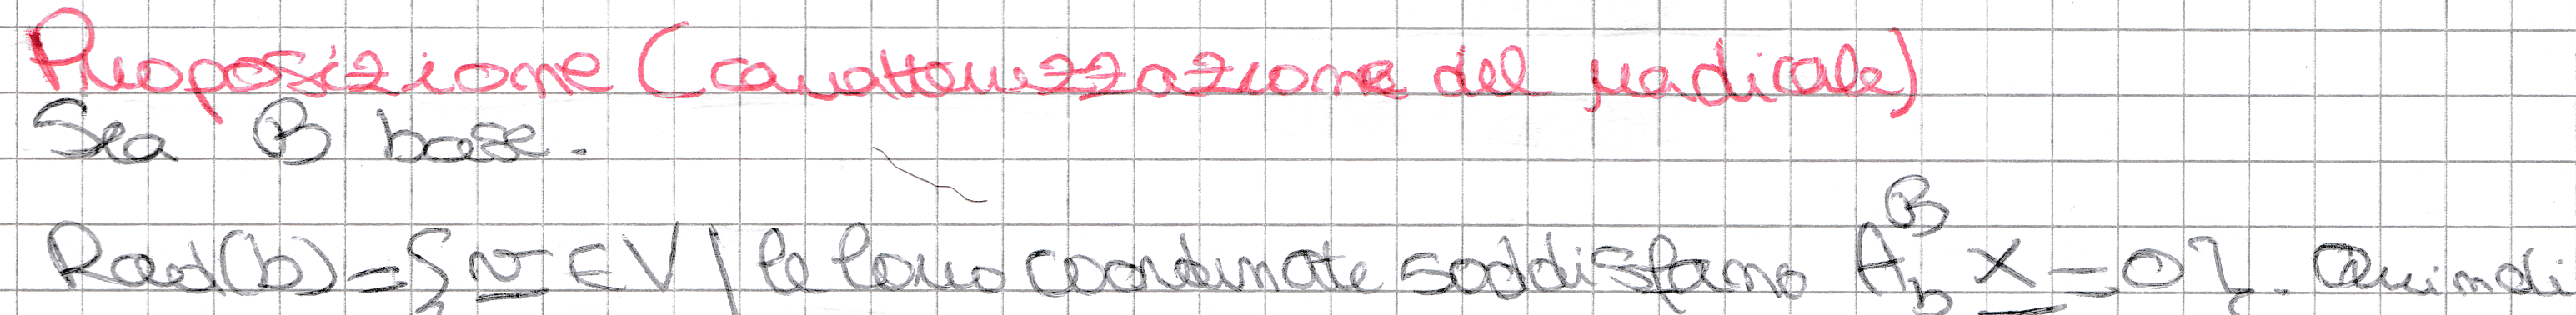 Proposizione (caratterizzazione del radicale)
Sia B base.
Rad(b) = { v ∈ V | le loro coordinate soddisfano A_b^B x = 0 }. Quindi